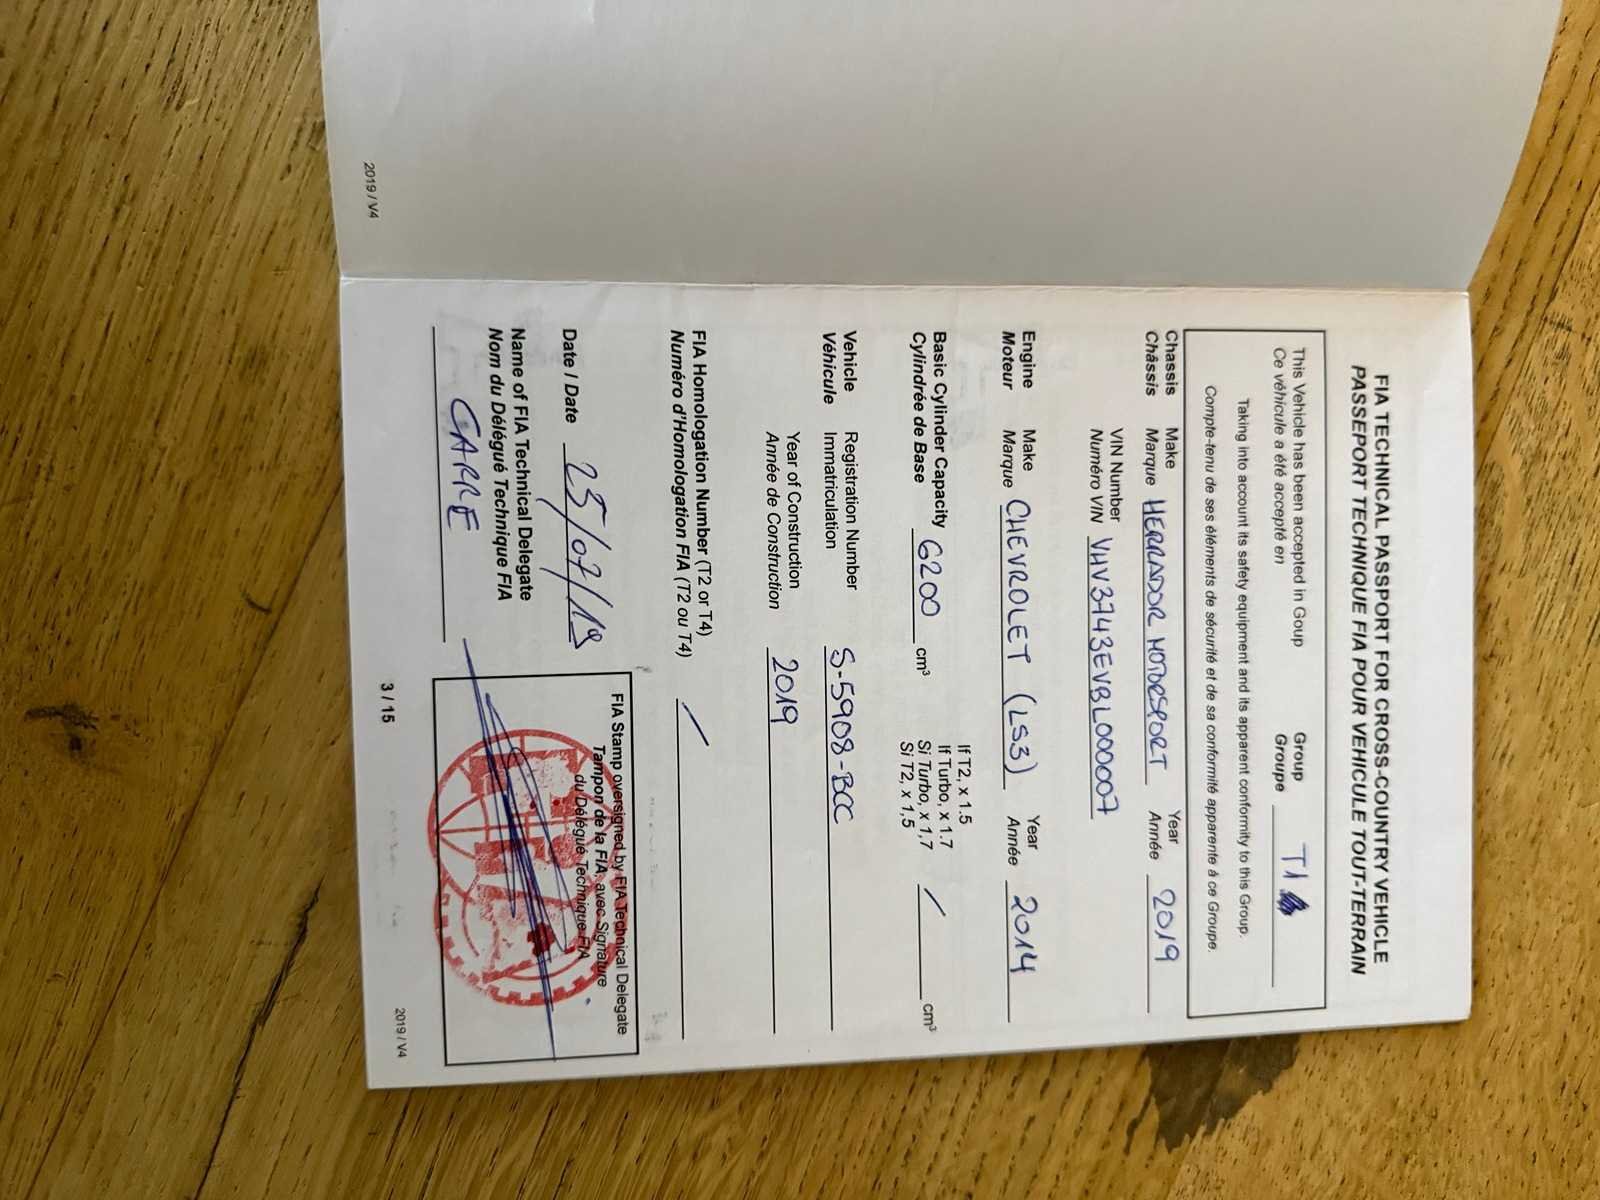 2019 / V4
FIA TECHNICAL PASSPORT FOR CROSS-COUNTRY VEHICLE
PASSEPORT TECHNIQUE FIA POUR VEHICULE TOUT-TERRAIN
This Vehicle has been accepted in Goup Group T1
Ce véhicule a été accepté en Groupe
Taking into account its safety equipment and its apparent conformity to this Group.
Compte-tenu de ses éléments de sécurité et de sa conformité apparente à ce Groupe.
Chassis Make HERRADOR MOTORSPORT Year 2019
Châssis Marque Année
VIN Number VHV3743EVBL000007
Numéro VIN
Engine Make CHEVROLET (LS3) Year 2014
Moteur Marque Année
Basic Cylinder Capacity 6200 cm³ If T2, x 1.5
Cylindrée de Base If Turbo, x 1.7 / cm³
Si Turbo, x 1,7
Si T2, x 1,5
Vehicle Registration Number S-5908-BCC
Véhicule Immatriculation
Year of Construction 2019
Année de Construction
FIA Homologation Number (T2 or T4) /
Numéro d'Homologation FIA (T2 ou T4)
Date / Date 25/07/19
Name of FIA Technical Delegate
Nom du Délégué Technique FIA
CARRE
FIA Stamp oversigned by FIA Technical Delegate
Tampon de la FIA, avec Signature
du Délégué Technique FIA
3 / 15
2019 / V4